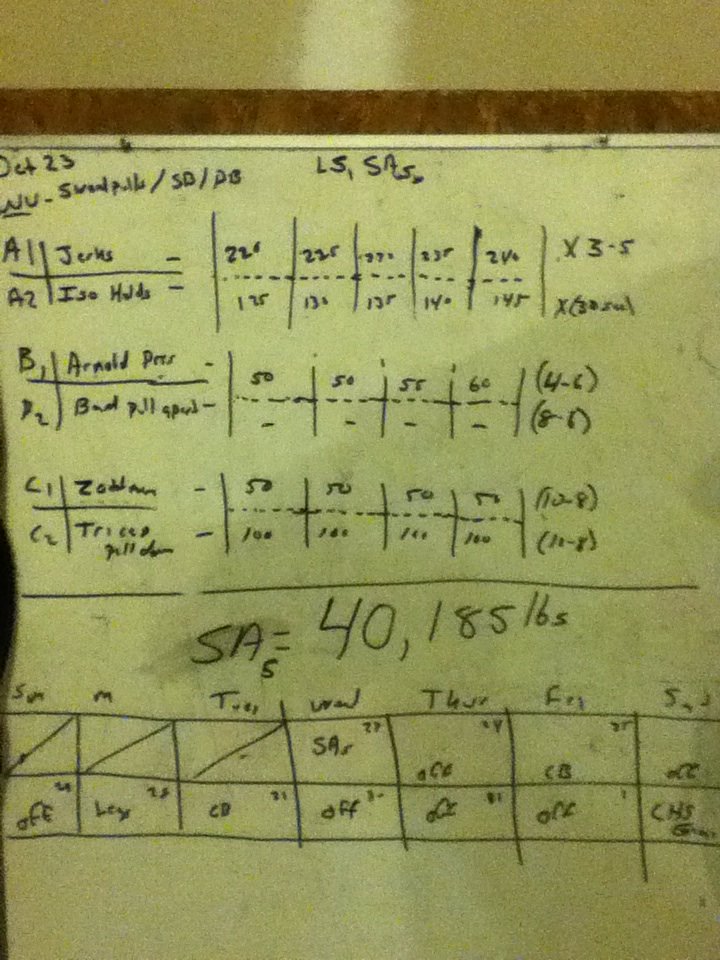 Oct 23 LS, SA5
WU - / SD / DB
A1 Jerks - 225 225 230 235 240 X 3-5
A2 Iso Holds - 125 130 135 140 145 X(30sec)
B1 Arnold Press - 50 50 55 60 (4-6)
B2 Band pull apart - - - - - (8-6)
C1 - 50 50 50 50 (10-8)
C2 Tricep pull down - 100 100 100 100 (10-8)
SA5 = 40,185 lbs
Sun M Tues Wed Thur Fri Sat
SA5 23 off 24 CB 25 off
off Legs CB off 30 off 31 off 1 CNS